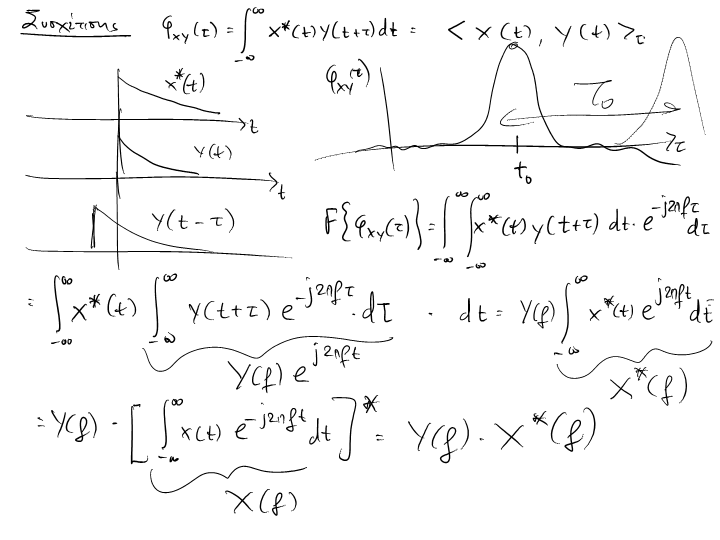 Συσχέτισης φxy(τ) = ∫_{-∞}^{∞} x*(t) y(t+τ) dt = < x(t), y(t) >_τ
x*(t)
t
y(t)
t
y(t-τ)
φxy(τ)
T₀
τ
t₀
F{φxy(τ)} = ∫_{-∞}^{∞} ∫_{-∞}^{∞} x*(t) y(t+τ) dt · e^{-j2πfτ} dτ
= ∫_{-∞}^{∞} x*(t) ∫_{-∞}^{∞} y(t+τ) e^{-j2πfτ} · dτ · dt = Y(f) ∫_{-∞}^{∞} x*(t) e^{j2πft} dt
Y(f) e^{j2πft}
X*(f)
= Y(f) · [ ∫_{-∞}^{∞} x(t) e^{-j2πft} dt ]* = Y(f) · X*(f)
X(f)